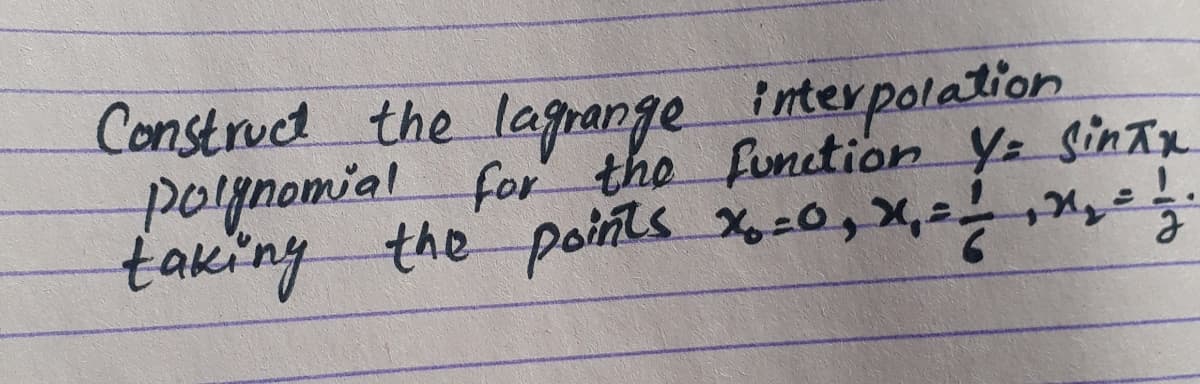 Construct the lagrange interpolation
polynomial for the function y = sin πx
taking the points x₀ = 0, x₁ = 1/6, x₂ = 1/2.